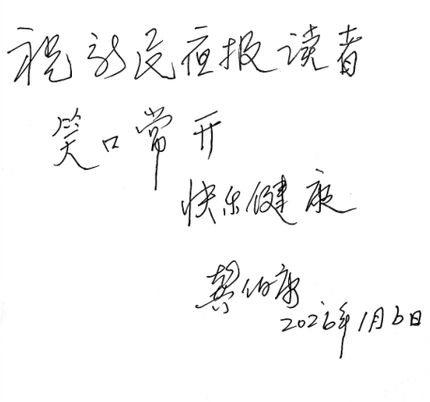 祝新民夜报读者
笑口常开
快乐健康
龚伯康
2026年1月6日